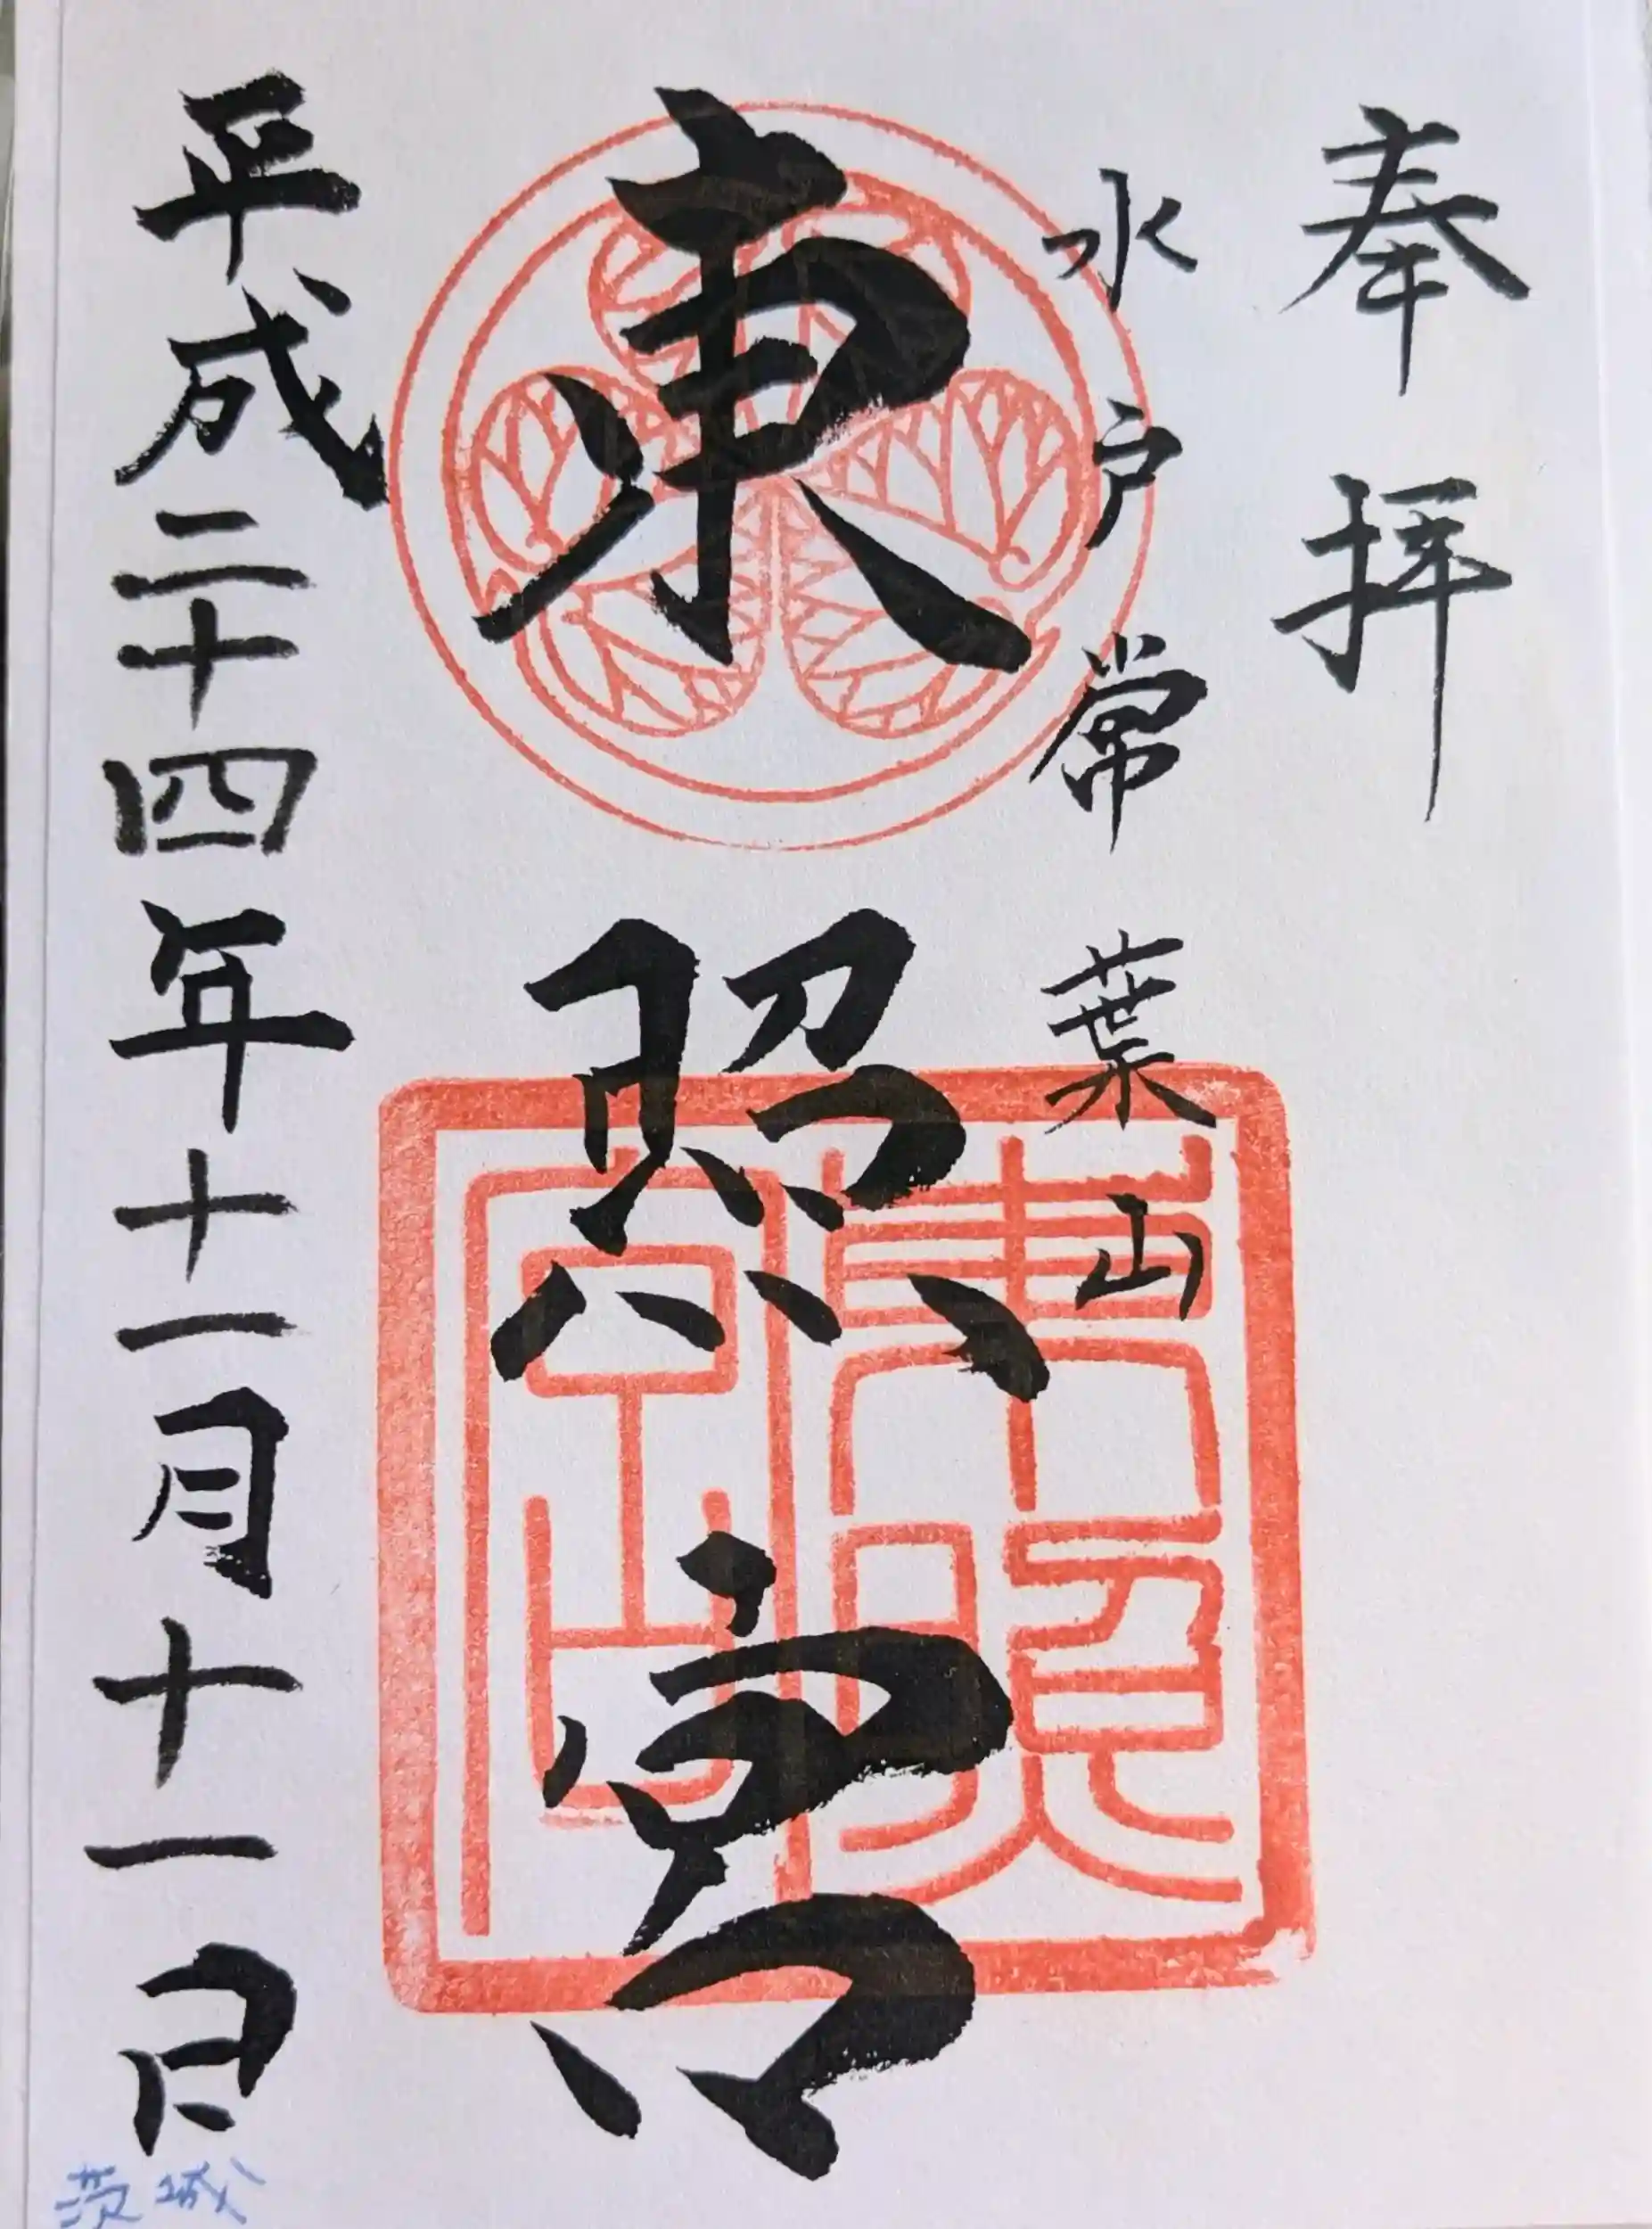 奉拝
水戸常葉山
東照宮
東照宮
平成二十四年十一月十一日
茨城